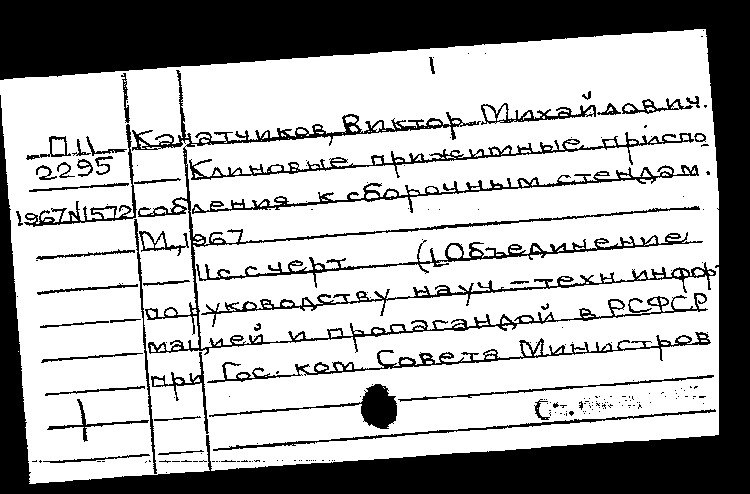 Канатчиков, Виктор Михайлович.
П11
2295
Клиновые прижимные приспо
1967N1572
собления к сборочным стендам.
М., 1967
11с с черт. (Объединение
по руководству науч.-техн. инфор-
мацией и пропагандой в РСФСР
при Гос. ком. Совета Министров